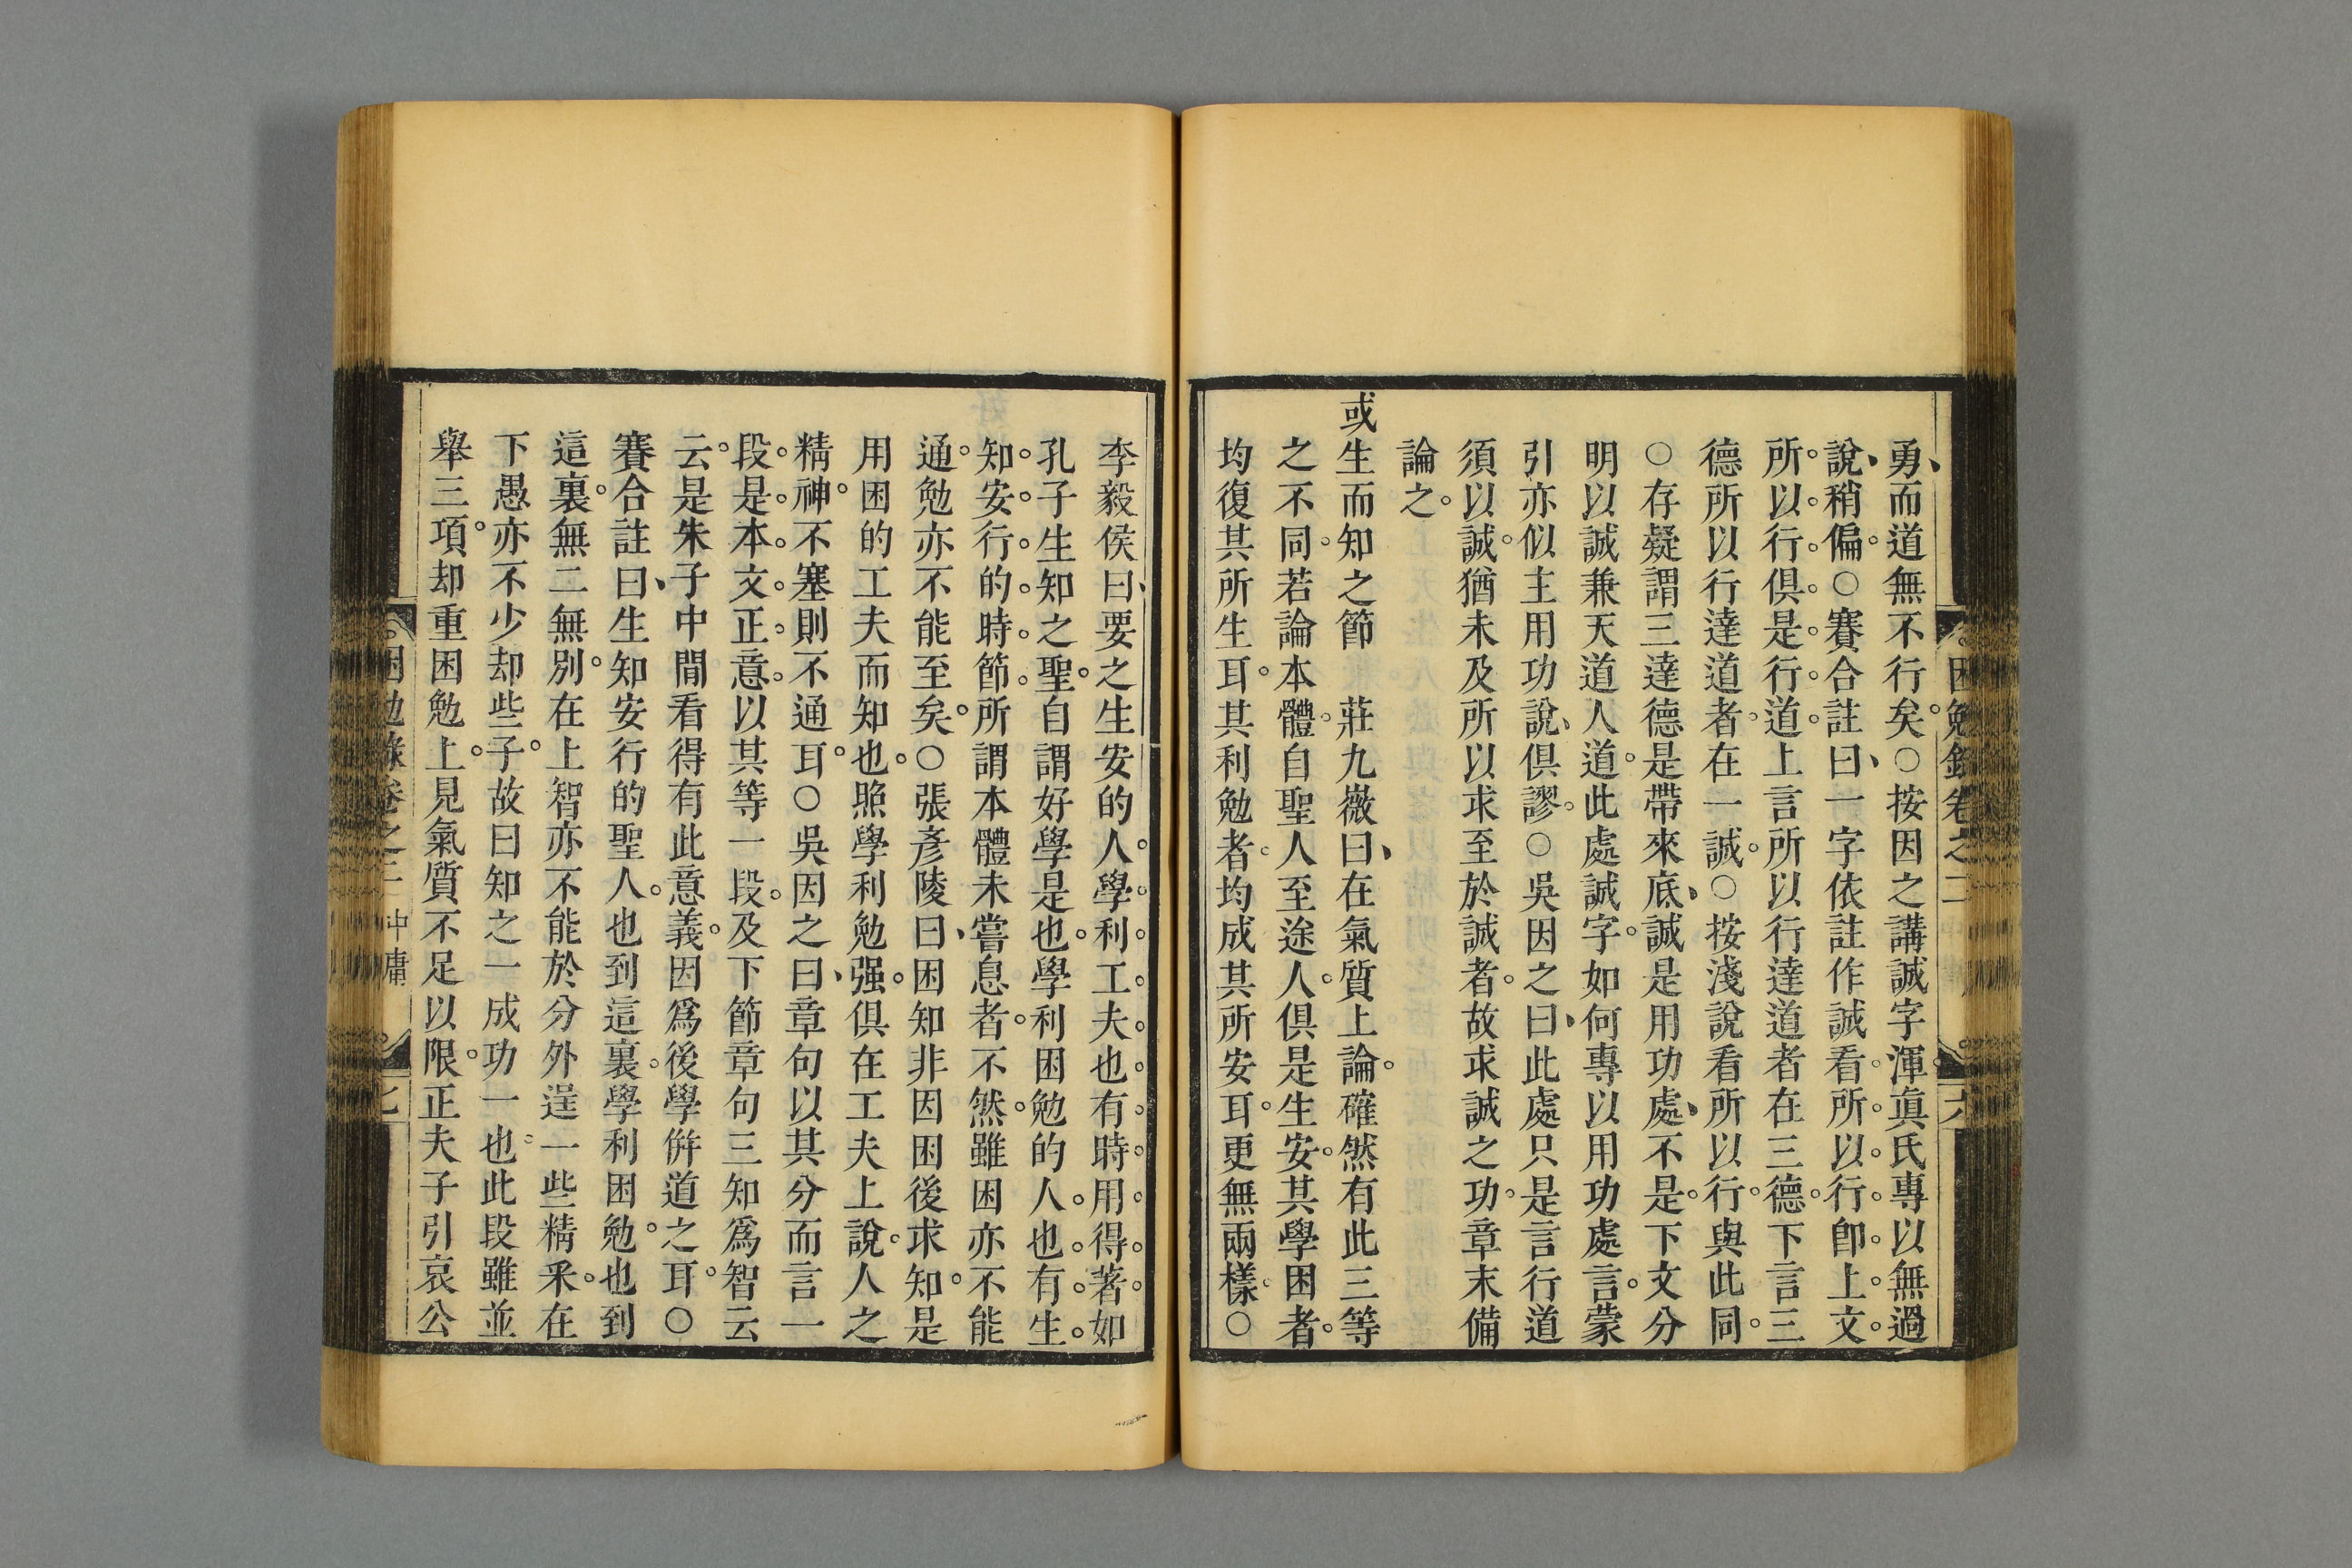 勇而道無不行矣○按因之講誠字渾眞氏專以無過
說稍偏○賽合註曰一字依註作誠看所以行卽上文
所以行俱是行道上言所以行達道者在三德下言三
德所以行達道者在一誠○按淺說看所以行與此同
○存疑謂三達德是帶來底誠是用功處不是下文分
明以誠兼天道人道此處誠字如何專以用功處言蒙
引亦似主用功說俱謬○吳因之曰此處只是言行道
須以誠猶未及所以求至於誠者故求誠之功章末備
論之
或生而知之節 莊九嶶曰在氣質上論確然有此三等
之不同若論本體自聖人至途人俱是生安其學困者
均復其所生耳其利勉者均成其所安耳更無兩樣○
李毅侯曰要之生安的人學利工夫也有時用得著如
孔子生知之聖自謂好學是也學利困勉的人也有生
知安行的時節所謂本體未嘗息者不然雖困亦不能
通勉亦不能至矣○張彥陵曰困知非因困後求知是
用困的工夫而知也照學利勉强俱在工夫上說人之
精神不塞則不通耳○吳因之曰章句以其分而言一
段是本文正意以其等一段及下節章句三知爲智云
云是朱子中間看得有此意義因爲後學倂道之耳○
賽合註曰生知安行的聖人也到這裏學利困勉也到
這裏無二無別在上智亦不能於分外逞一些精釆在
下愚亦不少却些子故曰知之一成功一也此段雖並
舉三項却重困勉上見氣質不足以限正夫子引哀公
困勉錄卷之二 中庸